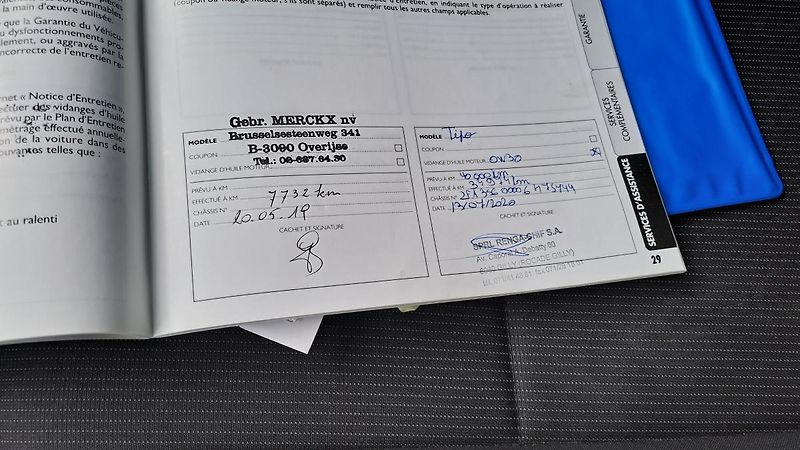 (coupon ou vidange moteur, s'ils sont séparés) et remplir tous les autres champs applicables.
la main d'œuvre utilisée.
que la Garantie du Véhicu-
dysfonctionnements pro-
ou aggravés par la
incorrecte de l'entretien re-
« Notice d'Entretien »,
des vidanges d'huile
prévu par le Plan d'Entretien
effectué annuelle-
de la voiture dans des
telles que :
au ralenti
Gebr. MERCKX nv
MODÈLE Brusselsesteenweg 341
COUPON B-3090 Overijse
VIDANGE D'HUILE MOTEUR Tel.: 02-687.64.30
PRÉVU À KM
EFFECTUÉ À KM 7732 km
CHÂSSIS N°
DATE 20.05.19
CACHET ET SIGNATURE
MODÈLE Tipo
COUPON
VIDANGE D'HUILE MOTEUR 0W30
PRÉVU À KM
EFFECTUÉ À KM
CHÂSSIS N°
DATE 13/07/2020
CACHET ET SIGNATURE
SPRL RENGA-SHIF S.A.
6060 GILLY (ROCADE GILLY)
GARANTIE
SERVICES COMPLÉMENTAIRES
SERVICES D'ASSISTANCE
29